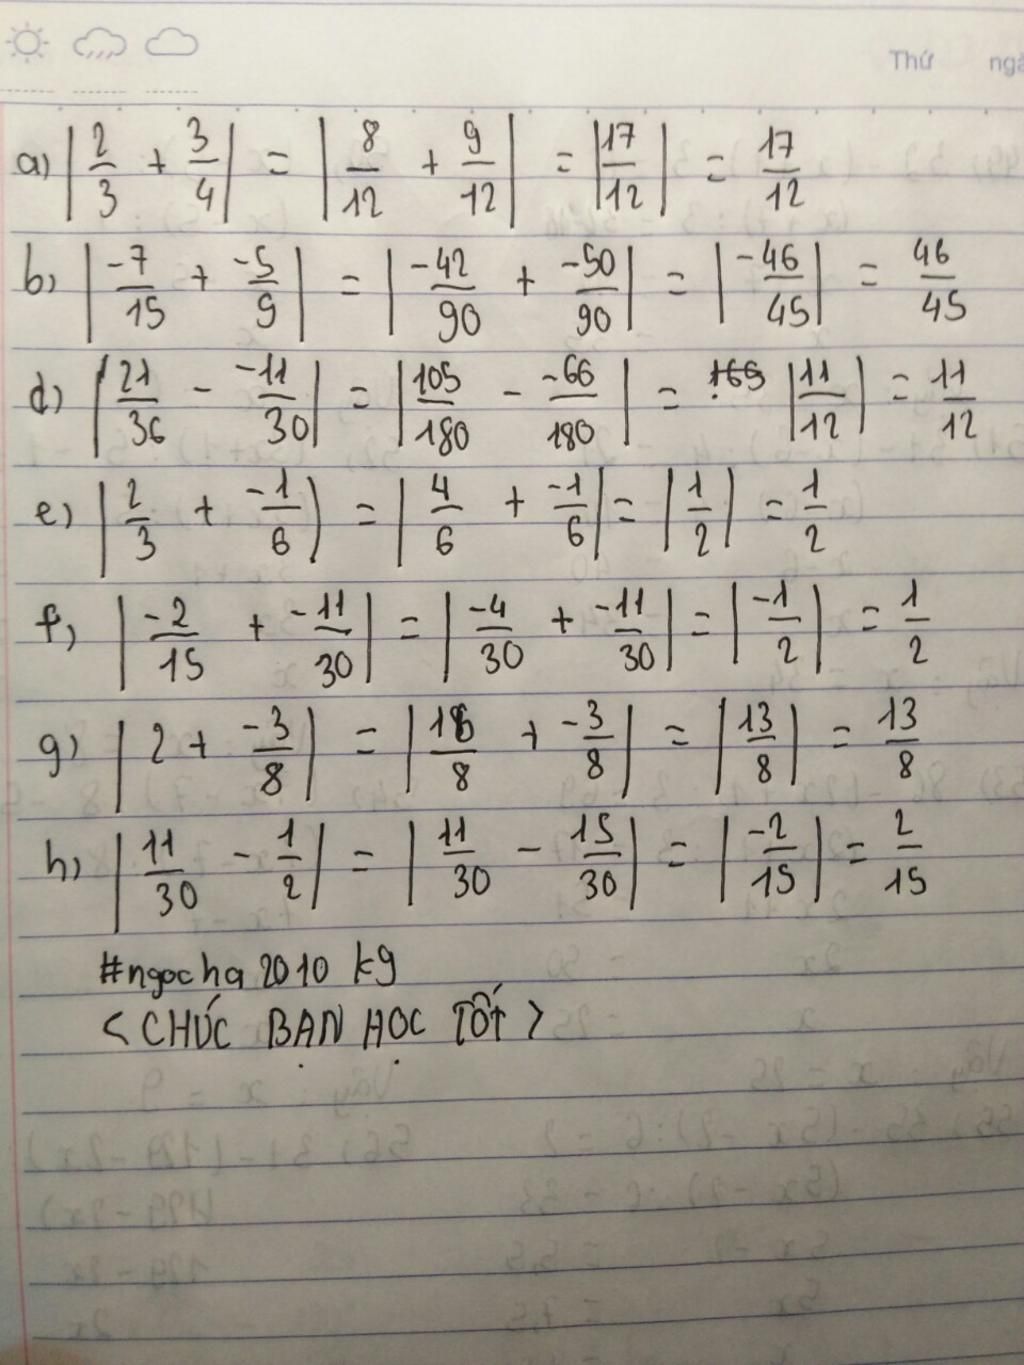 Thứ ngà
a) |2/3 + 3/4| = |8/12 + 9/12| = |17/12| = 17/12
b) |-7/15 + -5/9| = |-42/90 + -50/90| = |-46/45| = 46/45
d) |21/36 - -11/30| = |105/180 - -66/180| = |11/12| = 11/12
e) |2/3 + -1/6) = |4/6 + -1/6| = |1/2| = 1/2
f) |-2/15 + -11/30| = |-4/30 + -11/30| = |-1/2| = 1/2
g) |2 + -3/8| = |16/8 + -3/8| = |13/8| = 13/8
h) |11/30 - 1/2| = |11/30 - 15/30| = |-2/15| = 2/15
#ngocha2010 kg
< CHÚC BẠN HỌC TỐT >